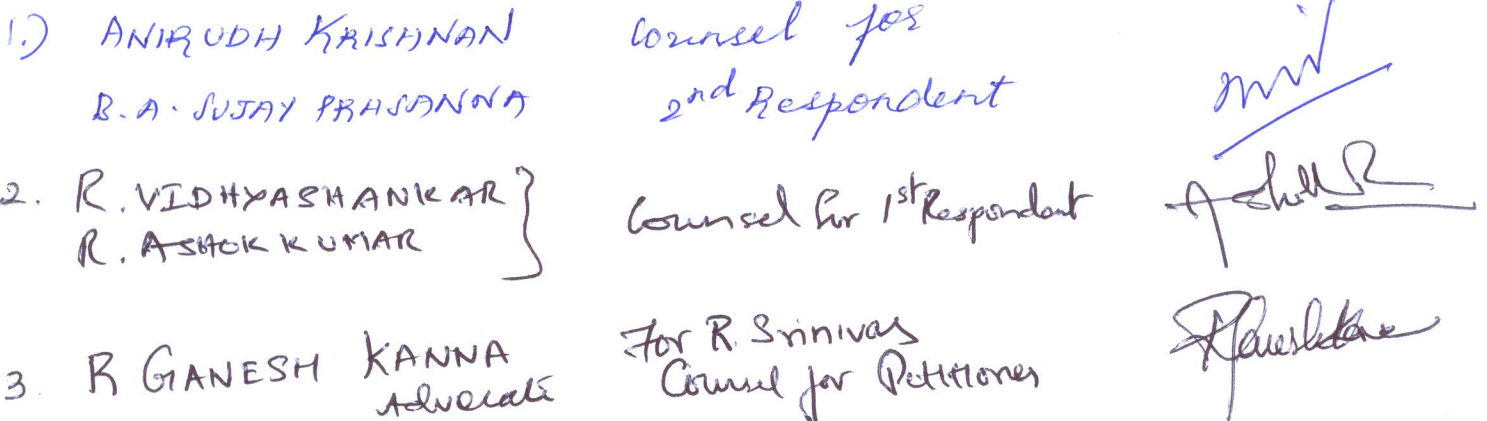 1.) ANIRUDH KRISHNAN Counsel for
B.A. SUJAY PRASANNA 2nd Respondent
2. R. VIDHYASHANKAR
R. ASHOK KUMAR
Counsel for 1st Respondent
Ashok R
3. R GANESH KANNA
Advocate
For R. Srinivas
Counsel for Petitioner